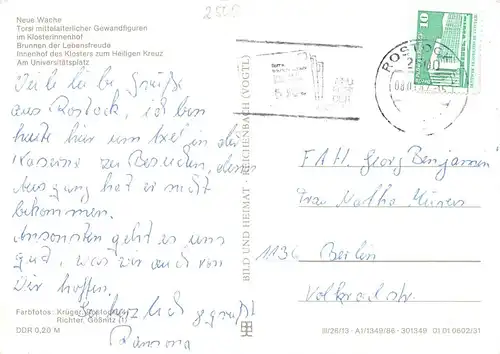 Neue Wache
Torsi mittelalterlicher Gewandfiguren
im Klosterinnenhof
Brunnen der Lebensfreude
Innenhof des Klosters zum Heiligen Kreuz
Am Universitätsplatz
Viele liebe Grüße
aus Rostock, ich bin
heute hier um Axel in der
Kaserne zu Besuchen, denn
Ausgang hat er nicht
bekommen.
Ansonsten geht es uns
gut, was wir auch von
Dir hoffen.
Es herzlich gegrüßt
Ramona
Farbfotos: Krüger, Rostock
Richter, Gößnitz (1)
DDR 0,20 M
BILD UND HEIMAT REICHENBACH (VOGTL)
10
ROSTOCK
2500
FAH. Georg Benjamin
Frau
1136 Berlin
Volkradstr.
III/26/13 · A1/1349/86 · 301349 01 01 0602/31